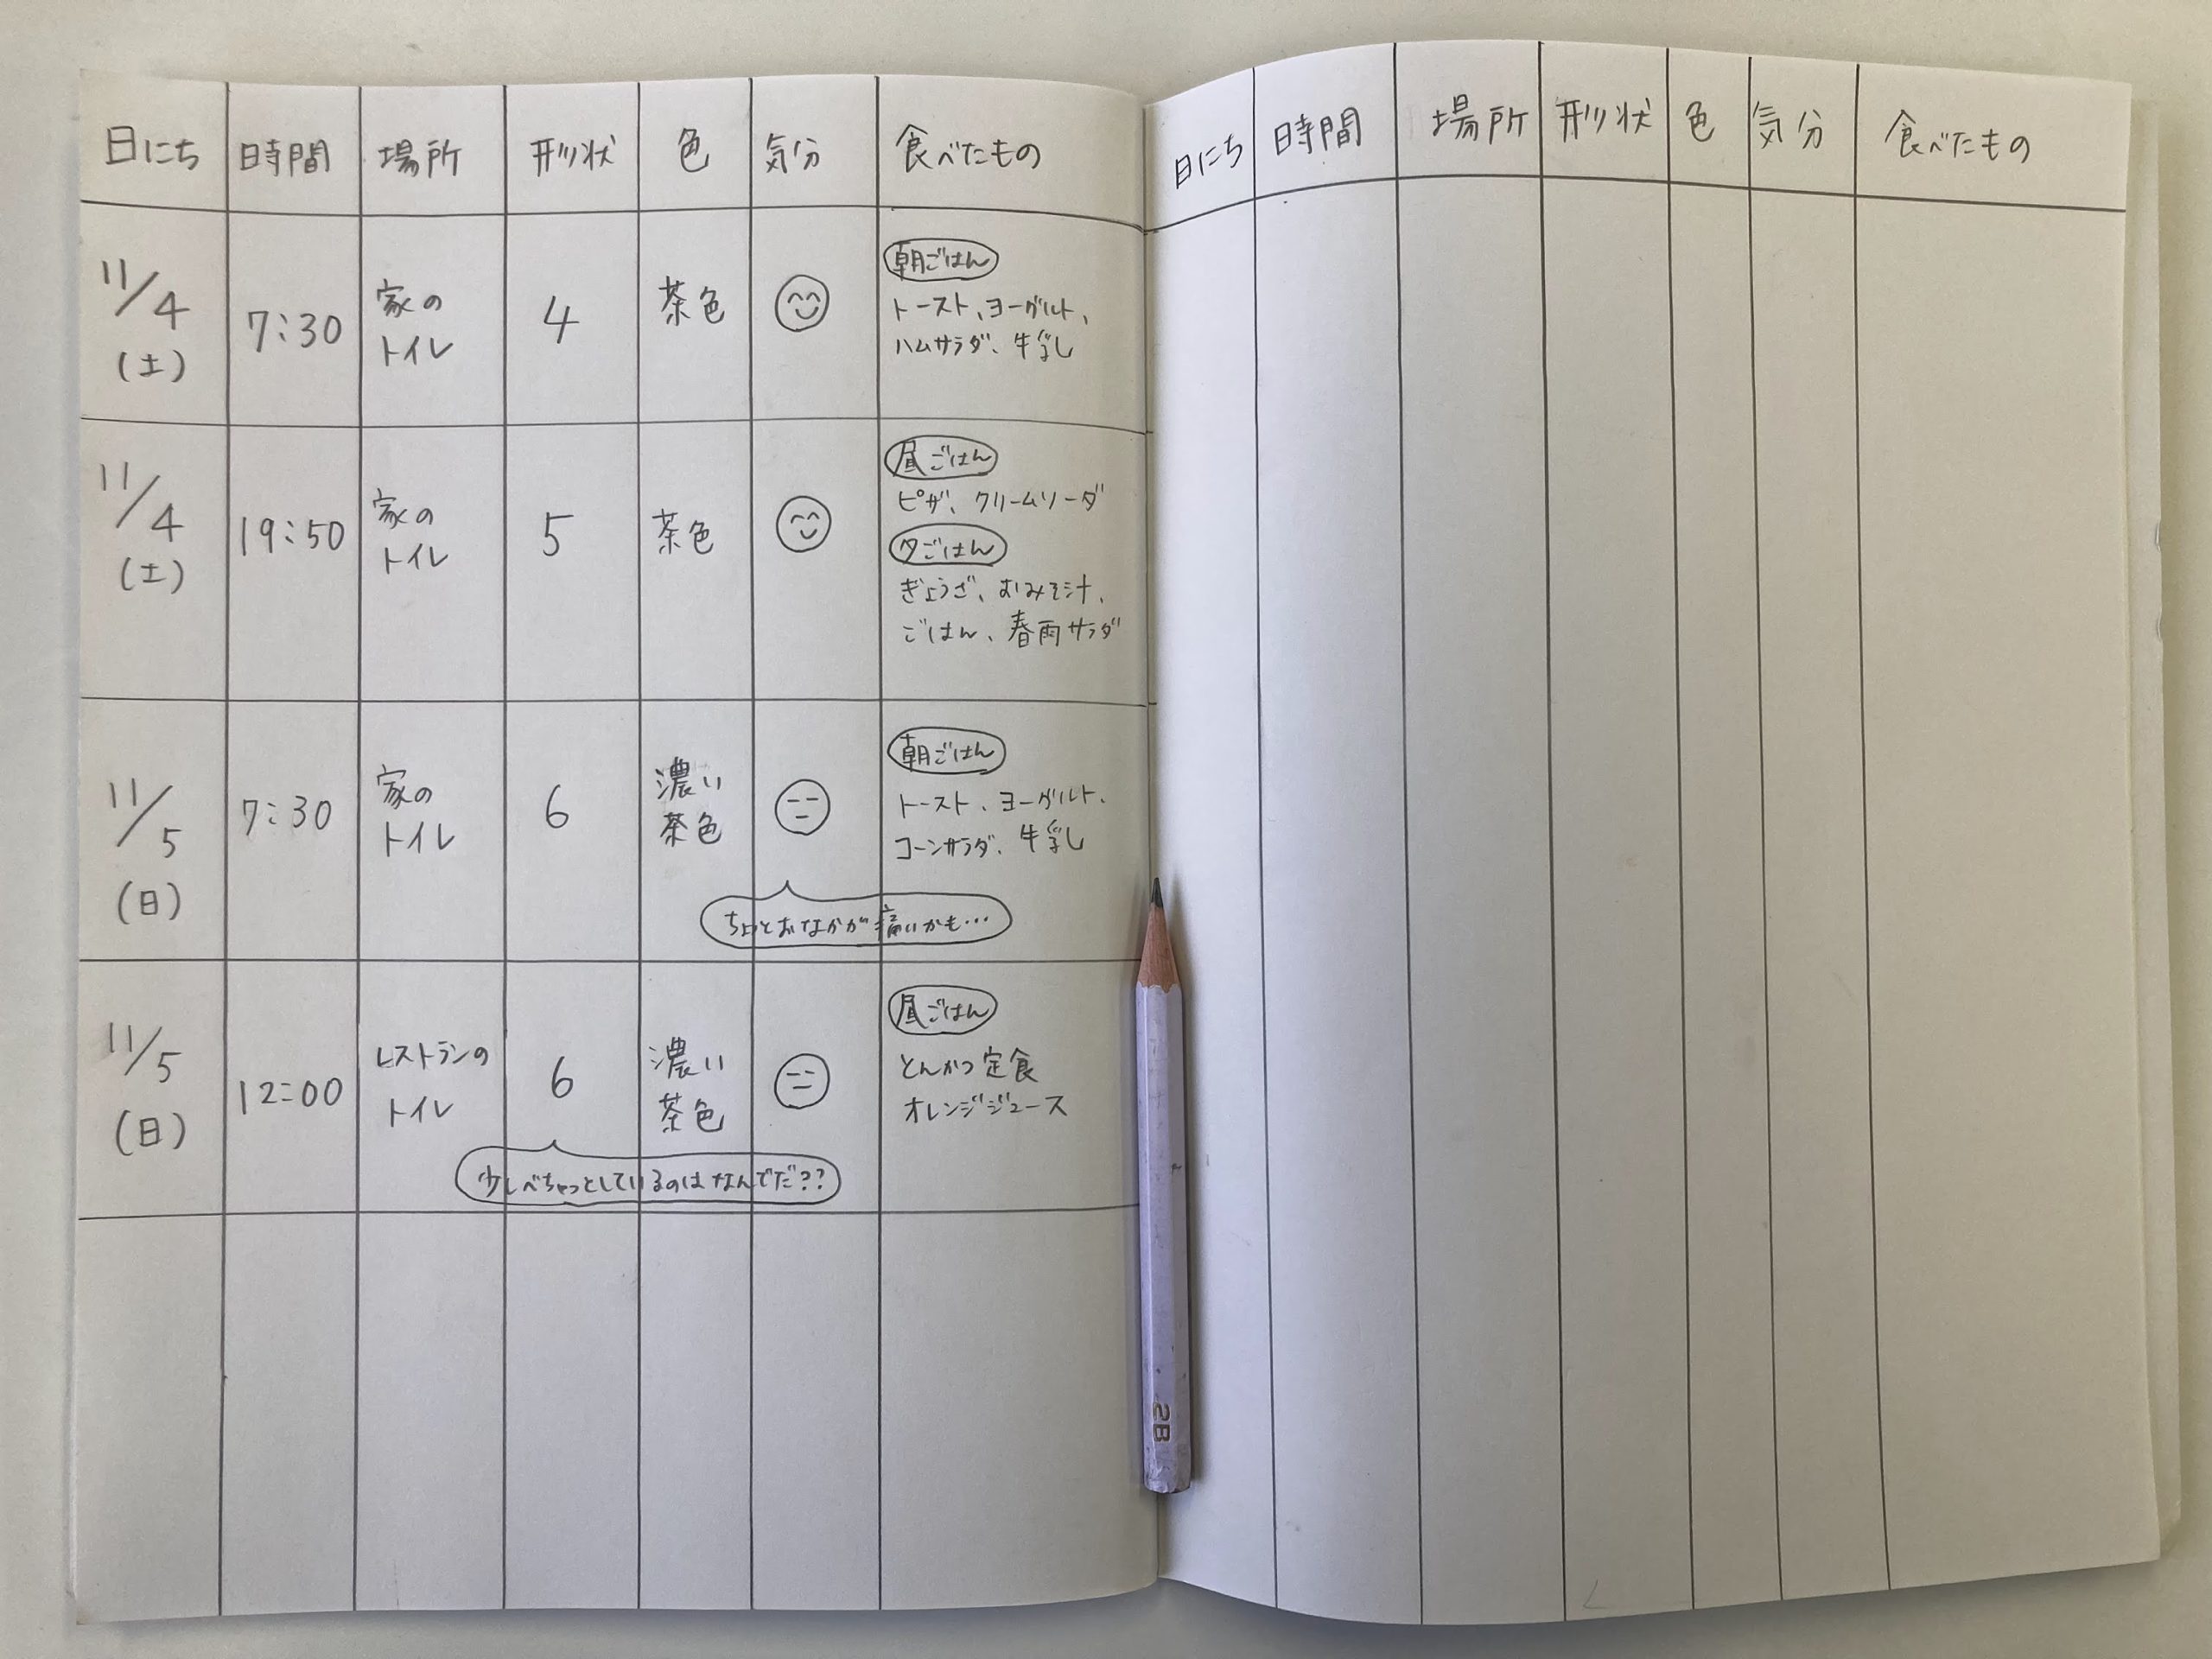 日にち 時間 場所 形状 色 気分 食べたもの
11/4
(土)
7:30
家の
トイレ
4
茶色
朝ごはん
トースト、ヨーグルト、
ハムサラダ、牛乳
11/4
(土)
19:50
家の
トイレ
5
茶色
昼ごはん
ピザ、クリームソーダ
夕ごはん
ぎょうざ、おみそ汁、
ごはん、春雨サラダ
11/5
(日)
7:30
家の
トイレ
6
濃い
茶色
朝ごはん
トースト、ヨーグルト、
コーンサラダ、牛乳
ちょっとおなかが痛いかも…
11/5
(日)
12:00
レストランの
トイレ
6
濃い
茶色
昼ごはん
とんかつ定食
オレンジジュース
少しべちゃっとしているのはなんでだ??
日にち 時間 場所 形状 色 気分 食べたもの
2B